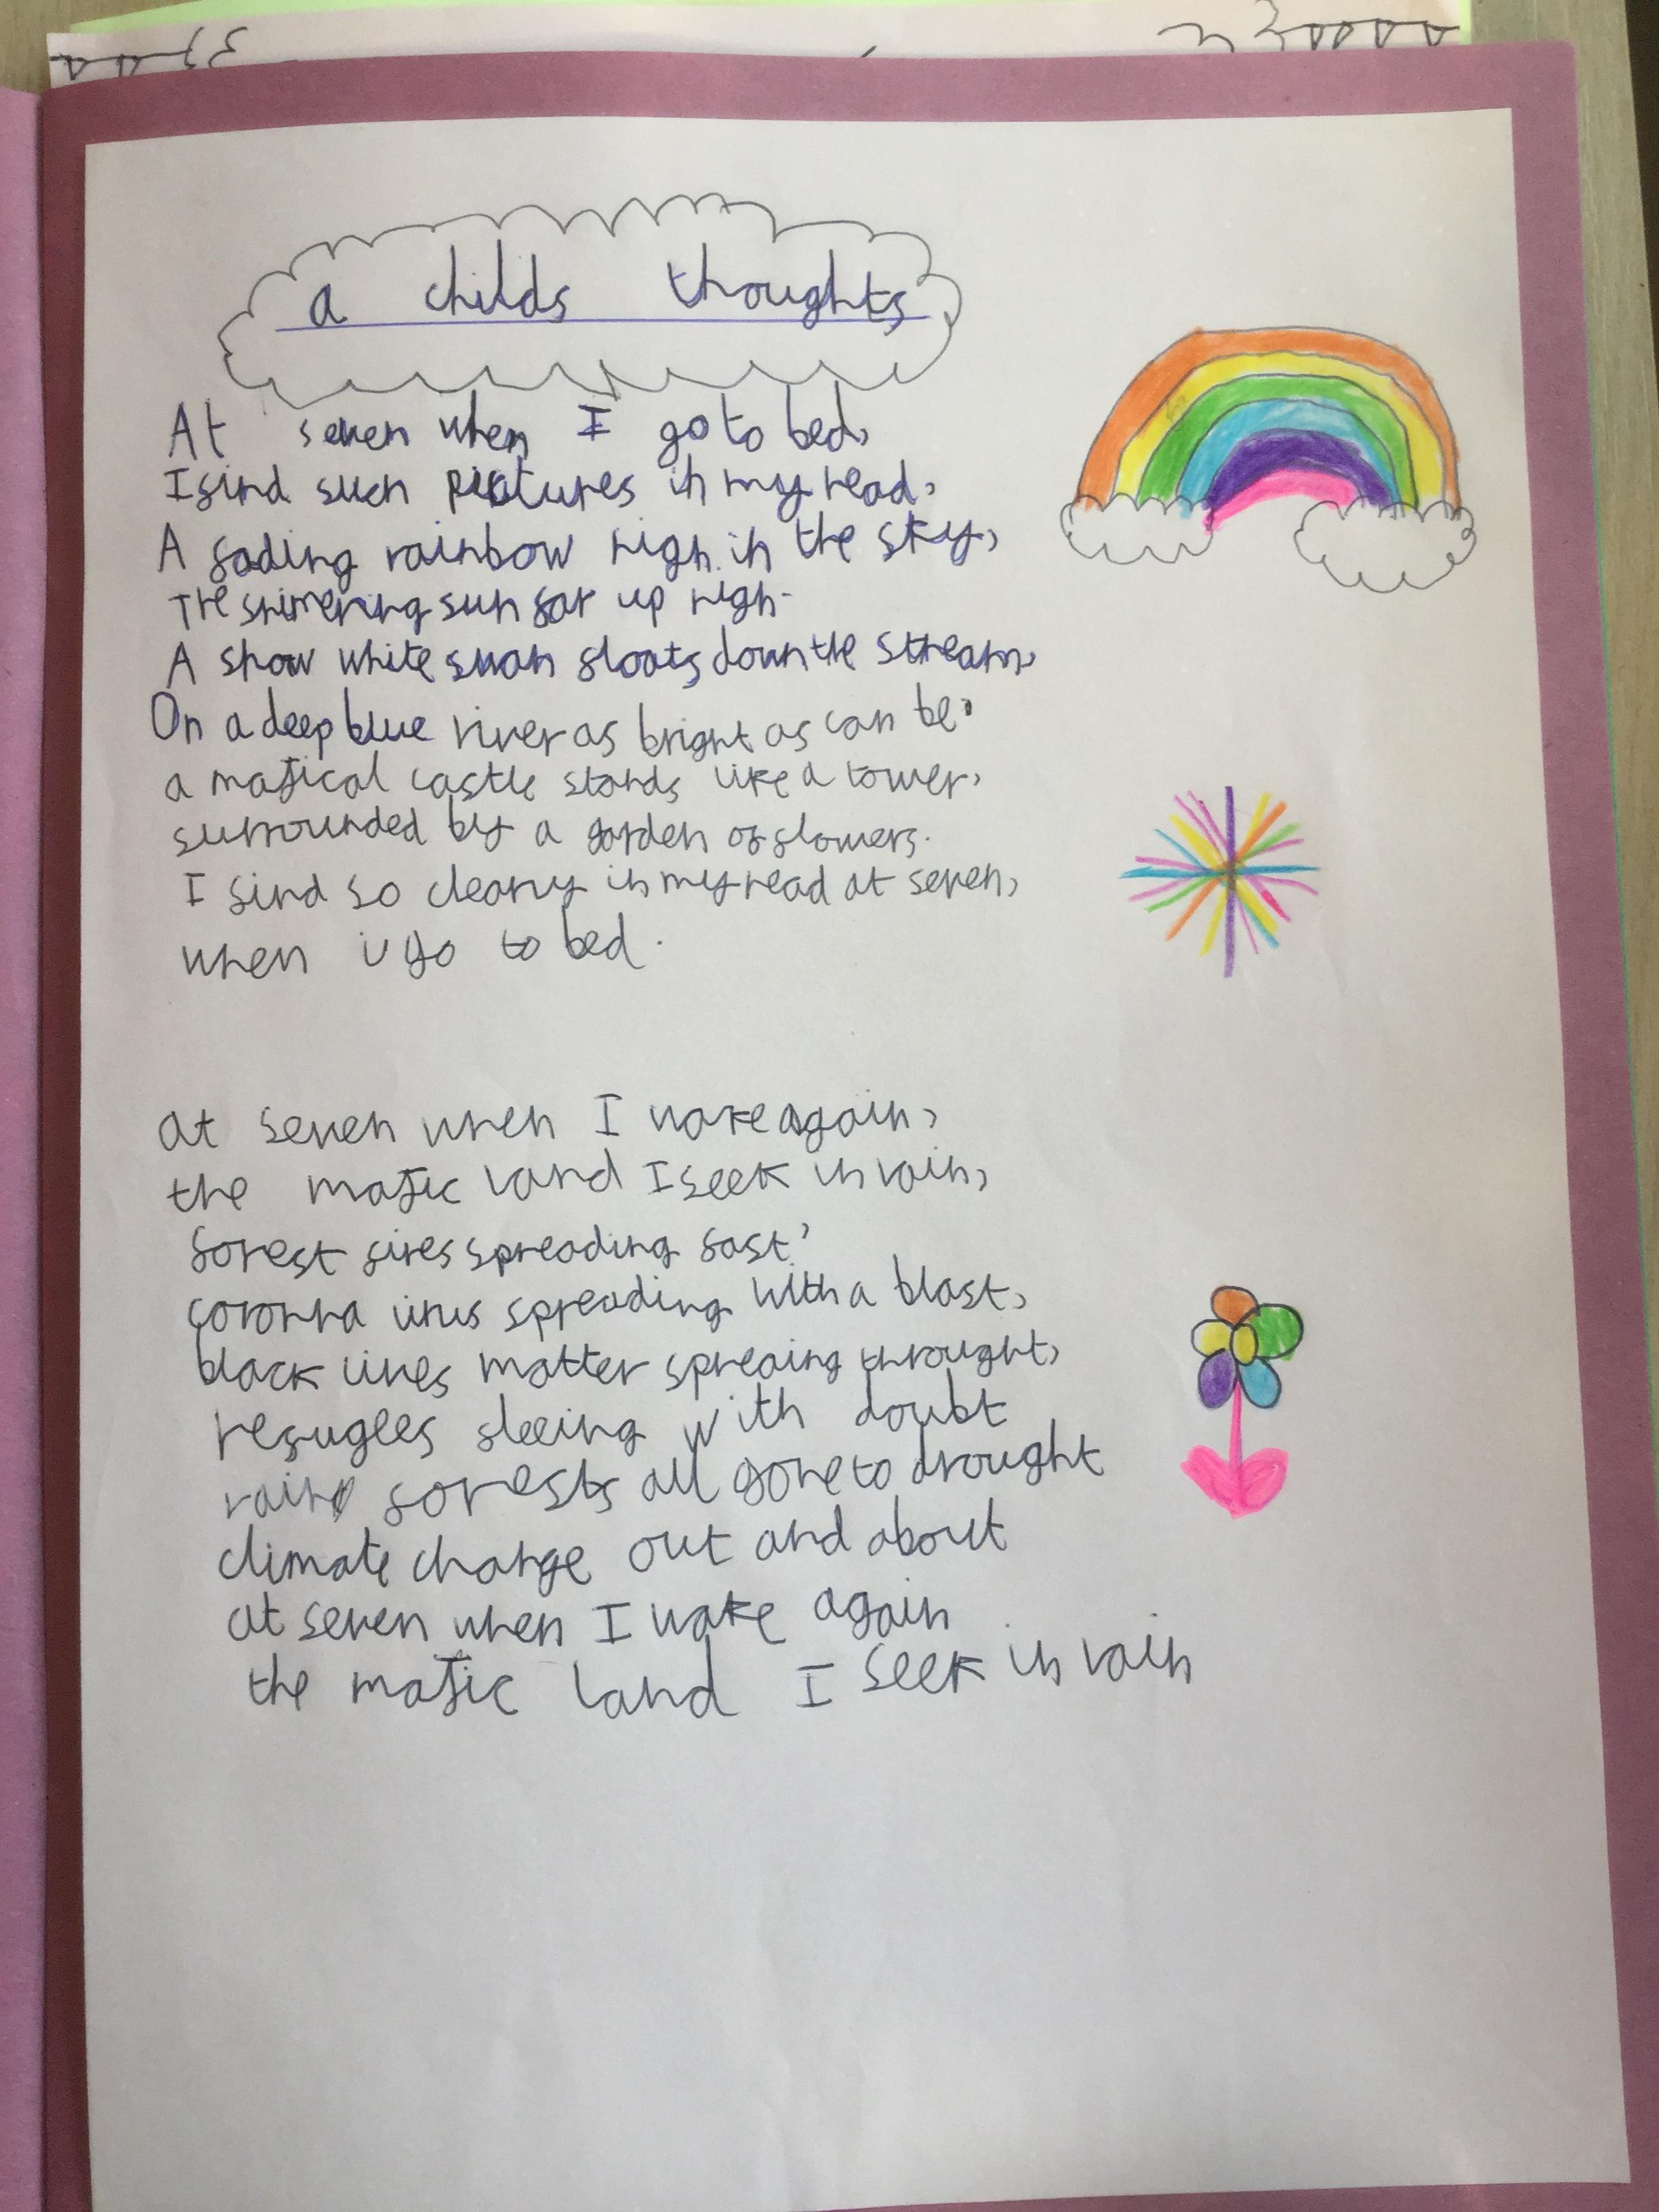 a childs thoughts
At seven when I go to bed,
I find such pictures in my head,
A fading rainbow high in the sky,
The shimering sun far up high.
A snow white swan floats down the stream,
On a deep blue river as bright as can be.
a majical castle stands like a tower,
surrounded by a garden of flowers.
I find so clearly in my head at seven,
when i go to bed.
at seven when I wake again,
the majic land I seek in vain,
forest fires spreading fast,
coronna virus spreading with a blast,
black lives matter spreaing throught,
refugees fleeing with doubt
rain forests all gone to drought
climate change out and about
at seven when I wake again
the majic land I seek in vain